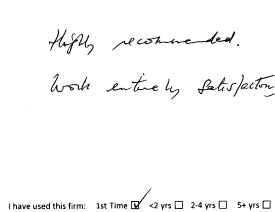 Highly recommended.
Work entirely satisfactory
I have used this firm: 1st Time ☑ <2 yrs ☐ 2-4 yrs ☐ 5+ yrs ☐